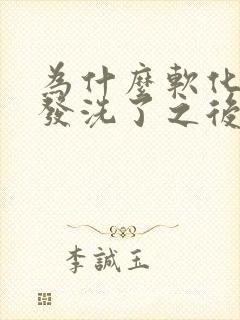 為什麼軟化
發洗了之後
李誠玉